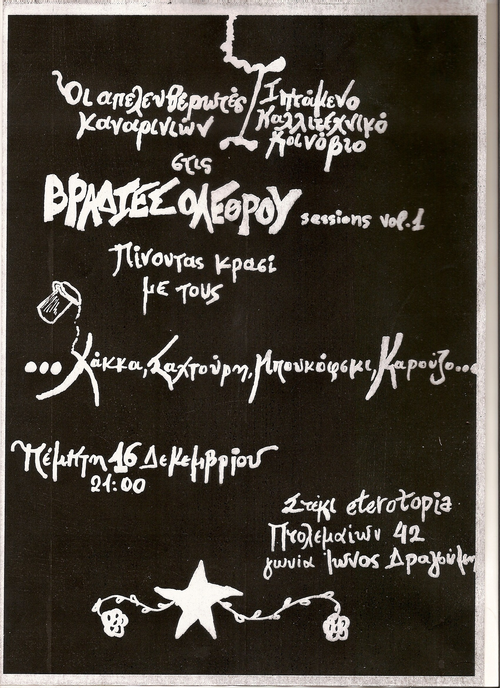 Οι απελευθερωτές
καναρινιών
Ιπτάμενο
Καλλιτεχνικό
Κοινόβιο
στις
ΒΡΑΔΙΕΣ ΟΛΕΘΡΟΥ sessions vol.1
Πίνοντας κρασί
με τους
... Χάκκα, Σαχτούρη, Μπουκόφσκι, Καρούζο...
Πέμπτη 16 Δεκεμβρίου
21:00
Στέκι eterotopia
Πτολεμαίων 42
γωνία Ίωνος Δραγούμη